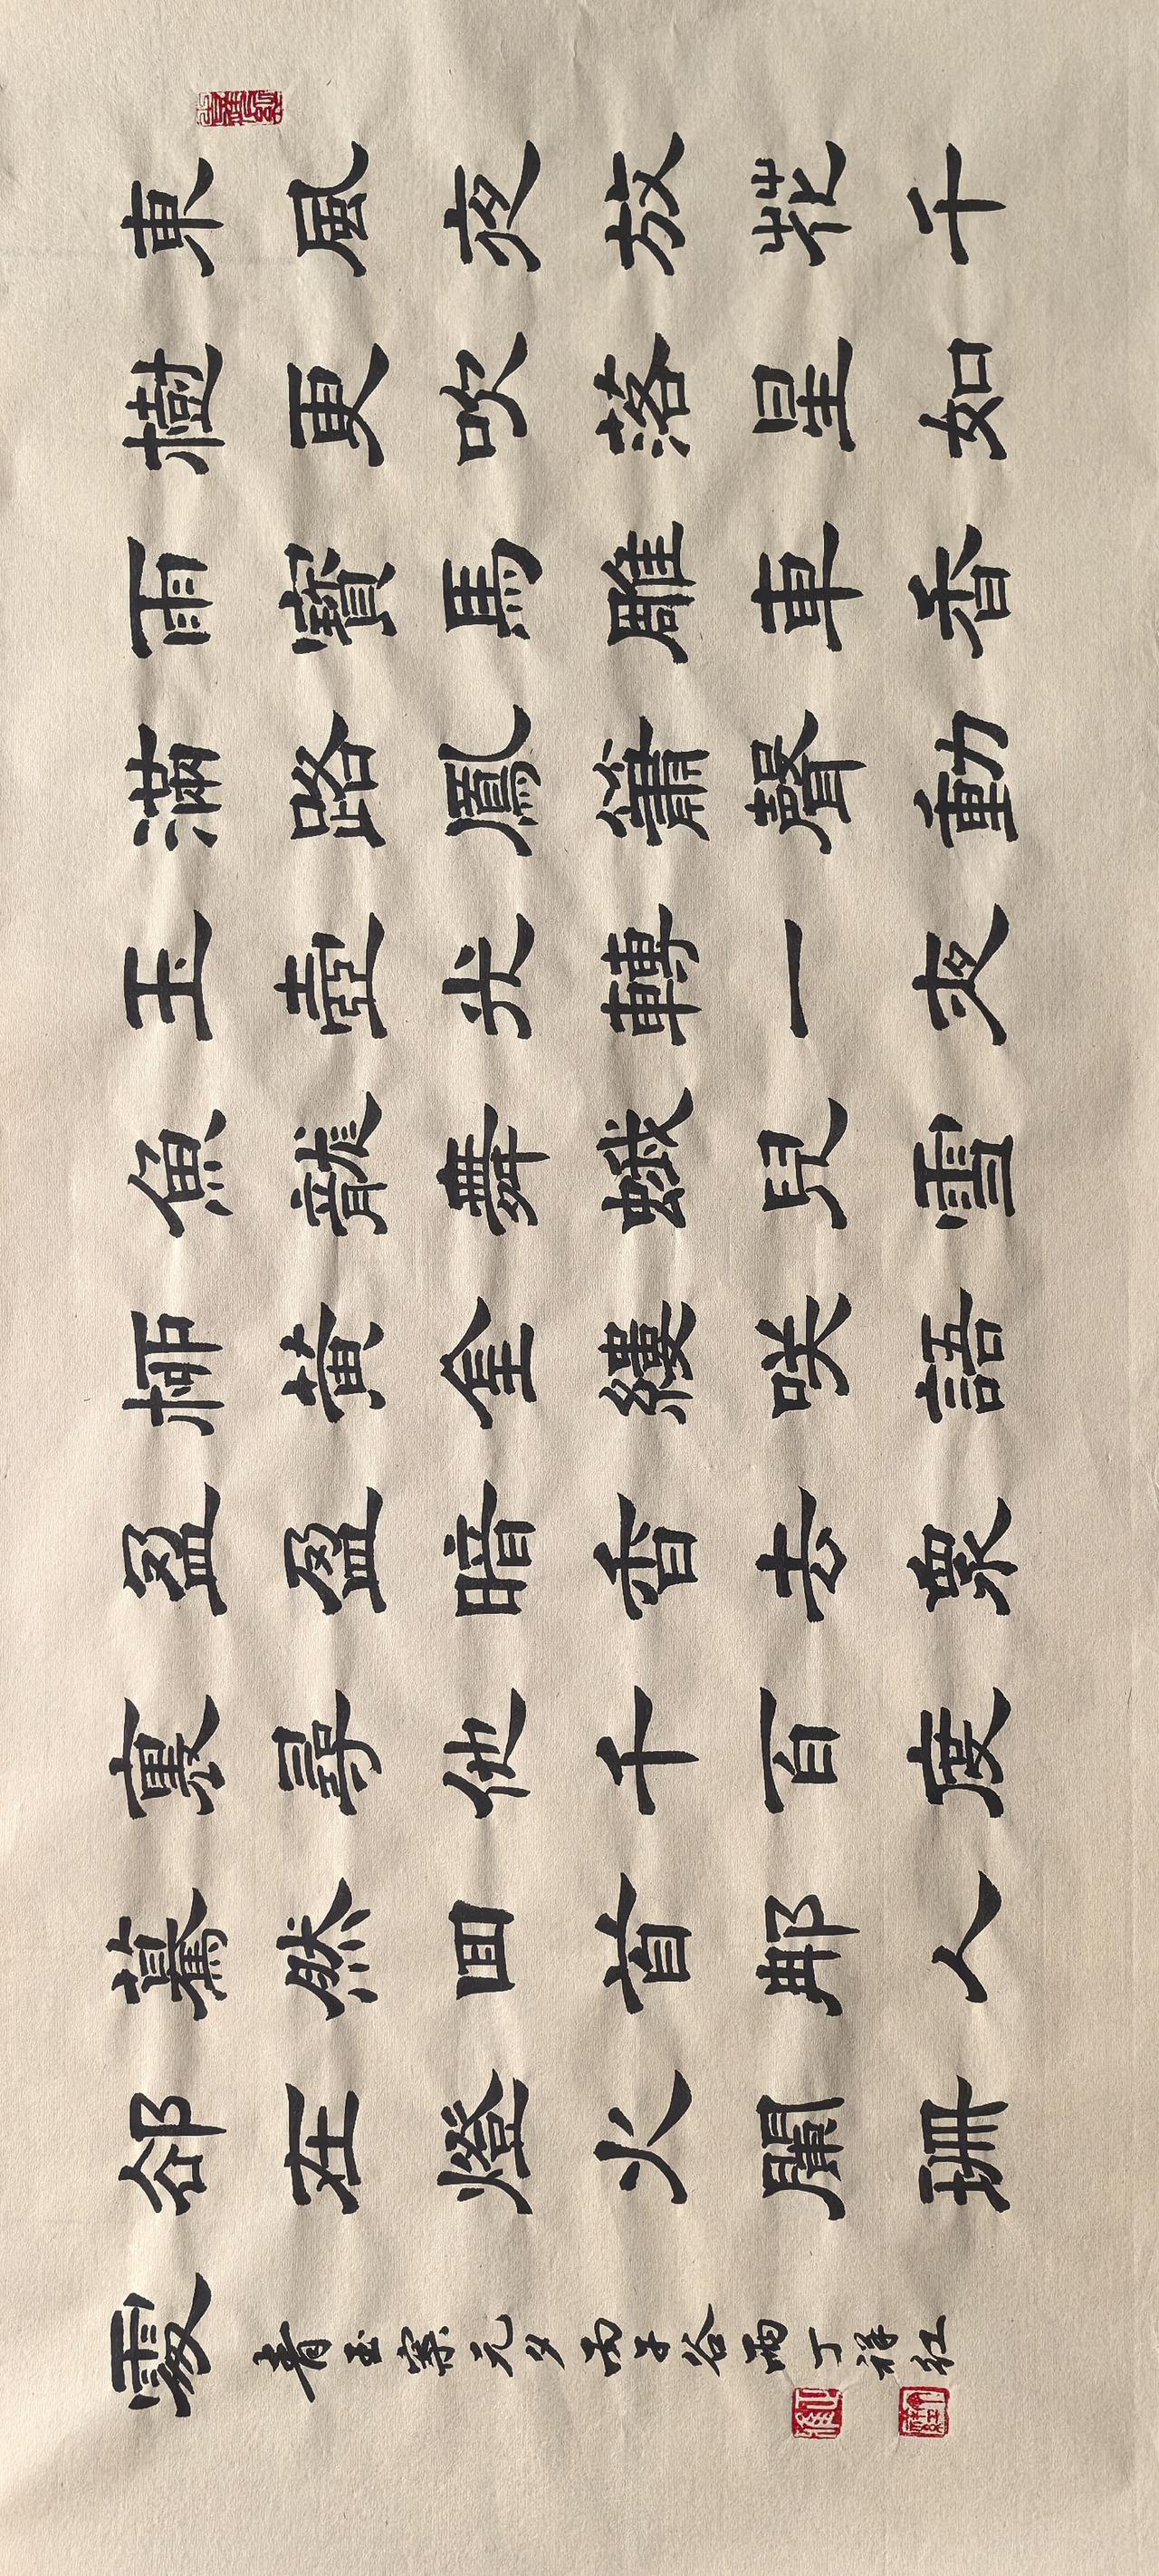 東風夜放花千
樹更吹落星如
雨寶馬雕車香
滿路鳳簫聲動
玉壺光轉一夜
魚龍舞蛾兒雪
柳黃金縷咲語
盈盈暗香去眾
裏尋他千百度
驀然回首那人
卻在燈火闌珊
處
青玉案元夕 子谷雨丁祥紅